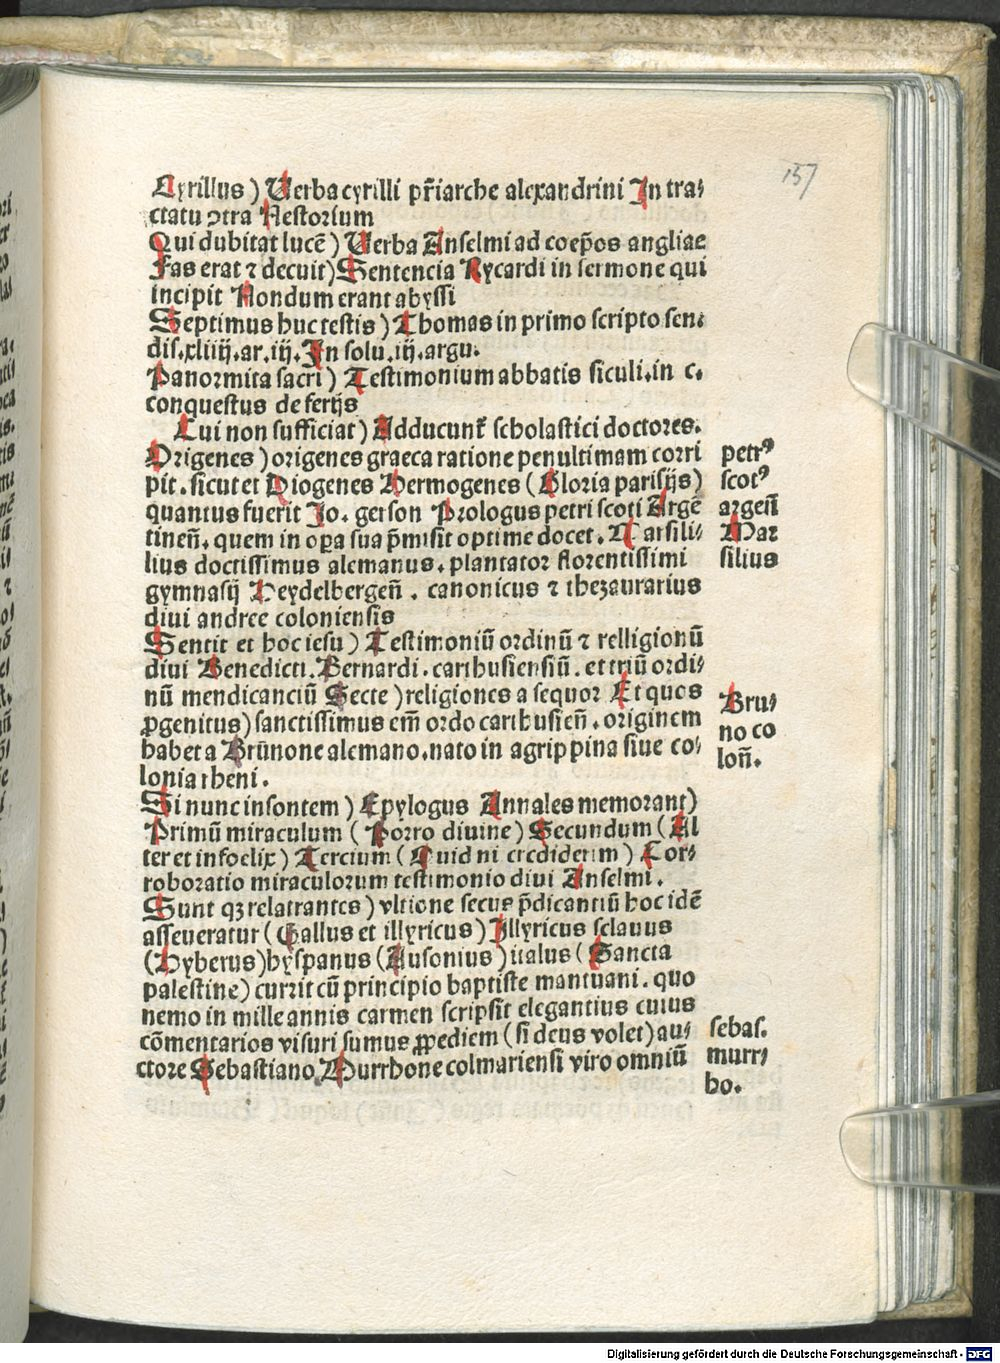 157
Cyrillus) Verba cyrilli pr̃iarche alexandrini In tra⸗
ctatu ↄtra Nestorium
Qui dubitat lucē) Verba Anselmi ad coep̄os angliae
Fas erat ⁊ decuit) Sentencia Rycardi in sermone qui
incipit Nondum erant abyssi
Septimus huc testis) Thomas in primo scripto sen⸗
dis.xliiij.ar.iij.In solu.iij.argu.
Panormita sacri) Testimonium abbatis siculi.in c.
conquestus de ferijs
Cui non sufficiat) Adducunt̃ scholastici doctores.
Origenes) origenes graeca ratione penultimam corri
pit.sicut et Diogenes Hermogenes (Gloria parisijs)
quantus fuerit Jo. gerson Prologus petri scoti Argē
tineñ. quem in oꝑa sua p̄misit optime docet. Marsili⸗
lius doctissimus alemanus. plantator florentissimi
gymnasij Heydelbergeñ. canonicus ⁊ thezaurarius
diui andree coloniensis
Sentit et hoc iesu) Testimoniū ordinū ⁊ relligionū
diui Benedicti.Bernardi.carthusiensiū. et triū ordi⸗
nū mendicanciū Secte) religiones a sequor Et quos
ꝓgenitus) sanctissimus em̄ ordo carthusieñ. originem
habet a Brūnone alemano.nato in agrippina siue co⸗
lonia rheni.
Si nunc insontem) Epylogus Annales memorant)
Primū miraculum (Porro diuine) Secundum (Al
ter et infoelix) Tercium (Quid ni crediderim) Cor⸗
roboratio miraculorum testimonio diui Anselmi.
Sunt qꝫ relatrantes) vltione secus p̄dicantiū hoc idē
asseueratur (Gallus et illyricus) Illyricus sclauus
(Hyberus) hyspanus (Ausonius) italus (Sancta
palestine) currit cū principio baptiste mantuani. quo
nemo in mille annis carmen scripsit elegantius cuius
cōmentarios visuri sumus ꝓpediem (si deus volet) au⸗
ctore Sebastiano Murrhone colmariensi viro omniū
petrꝰ
scotꝰ
argeñ
Mar
silius
Bru⸗
no co
loñ.
sebas.
murr⸗
ho.
Digitalisierung gefördert durch die Deutsche Forschungsgemeinschaft - DFG